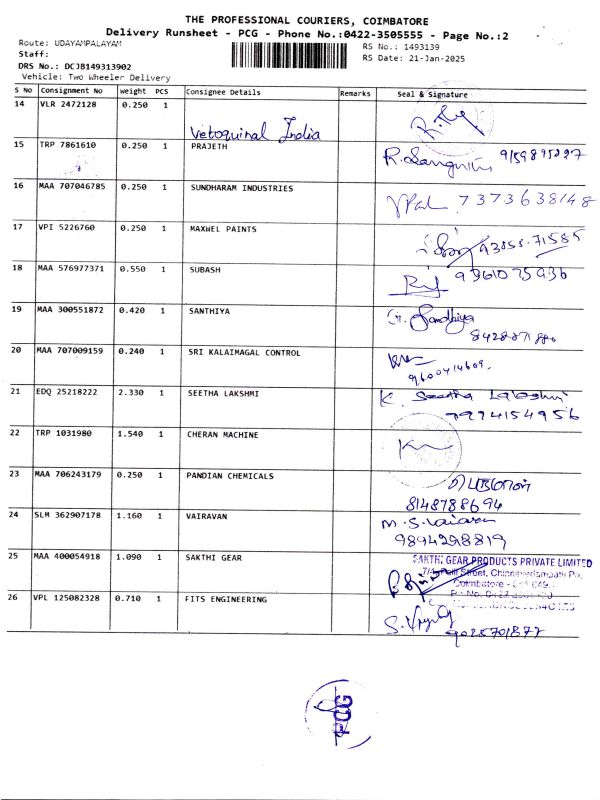 THE PROFESSIONAL COURIERS, COIMBATORE
Delivery Runsheet - PCG - Phone No.:0422-3505555 - Page No.:2
Route: UDAYAMPALAYAM
RS No.: 1493139
Staff:
RS Date: 21-Jan-2025
DRS No.: DCJB149313902
Vehicle: Two Wheeler Delivery
S No Consignment No Weight PCS Consignee Details Remarks Seal & Signature
14 VLR 2472128 0.250 1
Vetoquinal India
15 TRP 7861610 0.250 1 PRAJETH
16 MAA 707046785 0.250 1 SUNDHARAM INDUSTRIES
7373638148
17 VPI 5226760 0.250 1 MAXWEL PAINTS
93858-71585
18 MAA 576977371 0.550 1 SUBASH
9361075936
19 MAA 300551872 0.420 1 SANTHIYA
20 MAA 707009159 0.240 1 SRI KALAIMAGAL CONTROL
9600414609.
21 EDQ 25218222 2.330 1 SEETHA LAKSHMI
K. Seetha Lakshmi
7994154956
22 TRP 1031980 1.540 1 CHERAN MACHINE
23 MAA 706243179 0.250 1 PANDIAN CHEMICALS
8148788694
24 SLM 362907178 1.160 1 VAIRAVAN
M.S. Vairavan
9894298819
25 MAA 400054918 1.090 1 SAKTHI GEAR
SAKTHI GEAR PRODUCTS PRIVATE LIMITED
Coimbatore
26 VPL 125082328 0.710 1 FITS ENGINEERING
9025701877
PCG